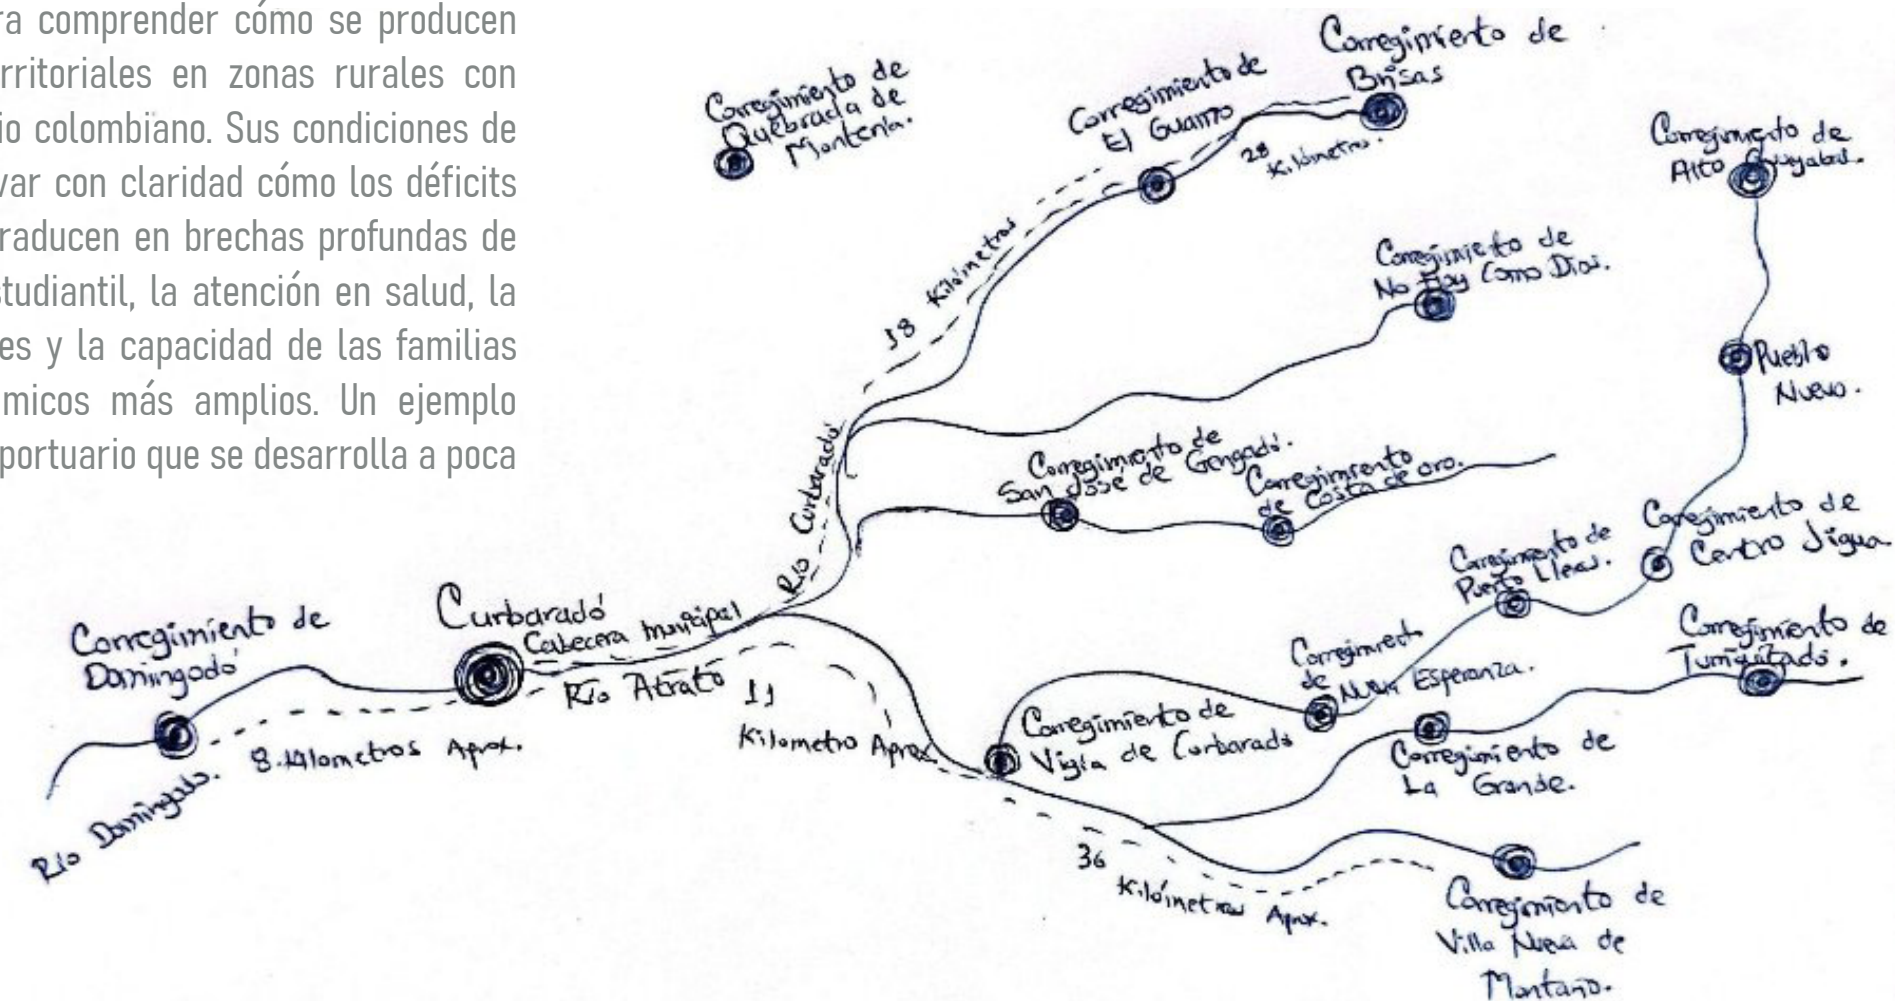 ra comprender cómo se producen
rritoriales en zonas rurales con
io colombiano. Sus condiciones de
var con claridad cómo los déficits
raducen en brechas profundas de
studiantil, la atención en salud, la
es y la capacidad de las familias
micos más amplios. Un ejemplo
portuario que se desarrolla a poca
Corregimiento de
Quebrada de
Montería.
Corregimiento de
El Guamo
Corregimiento de
Brisas
28
Kilómetros.
18 Kilómetros
Corregimiento de
Alto Guayabal.
Corregimiento de
No Hay Como Dios.
Pueblo
Nuevo.
Río Curbaradó
Corregimiento de
San Jose de Gengadó.
Corregimiento
de Costa de oro.
Corregimiento de
Centro Jigua
Corregimiento de
Puerto Lleras.
Corregimiento de
Domingodó
Curbaradó
Cabecera Municipal
Río Atrato
11
Kilometro Aprox
Río Domingodo.
8 Kilometros Aprox.
Corregimiento de
Vigía de Curbaradó
Corregimiento
de Nueva Esperanza.
Corregimiento de
Turriquitadó.
Corregimiento de
La Grande.
36
Kilómetros Aprox.
Corregimiento de
Villa Nueva de
Montaño.